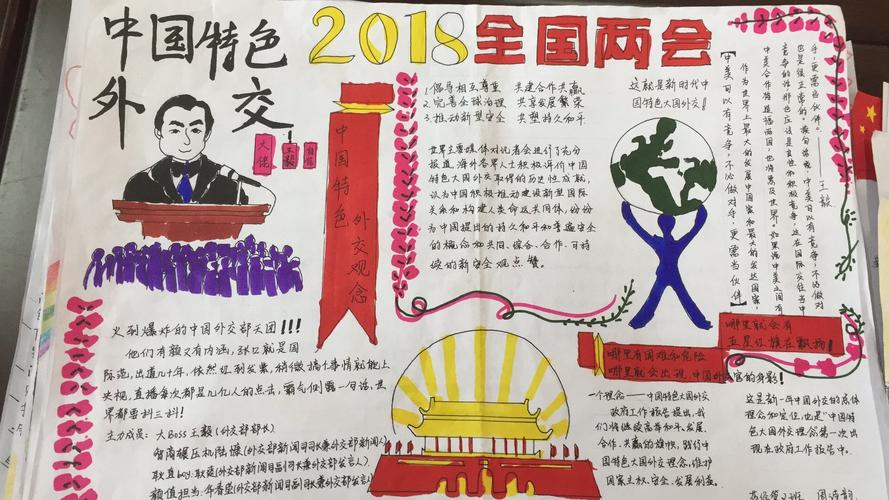 中国特色
外交
2018全国两会
大佬
王毅
中国特色
外交观念
1.倡导相互尊重 共建合作共赢
2.完善全球治理 共享发展繁荣
3.推动新型安全 共塑持久和平.
世界主要媒体对记者会进行了充分
报道,海外各界人士积极评价中国
特色大国外交取得的历史性成就,
认为中国积极推动建设新型国际
关系和构建人类命运共同体,纷纷
为中国提出的持久和平和普遍安全
的概念和共同、综合、合作、可持
续的新安全观点赞。
这就是新时代中
国特色大国外交!
【中美可以有竞争,不必做对手,更需当伙伴】
作为世界上最大的发展中国家和最大的发达国家,
中美合作将造福两国,也将惠及世界。如果说中美之间有
竞争的话那也应该是良性和积极竞争,这在国际交往当中
也是很正常的。换句话说,中美可以有竞争,不必做对
手,更需当伙伴。——王毅
火到爆炸的中国外交部天团!!!
他们有颜又有内涵,张口就是国
际范,出道几十年,依然红到发紫,稍微搞个事情就能上
央视,直播每次都是几亿人的点击,霸气侧露一句话,世
界都要抖三抖!
主力成员:大Boss王毅(外交部部长)
智商碾压机陆慷(外交部新闻司司长兼外交部新闻人)
耿直boy:耿爽(外交部新闻司副司长兼外交部发言人)
颜值担当:华春莹(外交部新闻司副司长兼外交部发言人)
哪里就会有
五星红旗在飘扬!
哪里有困难和危险
哪里就会出现中国外交官的身影!
一个理念——中国特色大国外交
政府工作报告提出,我
们将继续高举和平、发展、
合作、共赢的旗帜,践行中
国特色大国外交理念,维护
国家主权、安全、发展利益。
这是新一年中国外交的总体
理念和定位,也是"中国特
色大国外交理念"第一次出
现在政府工作报告中。